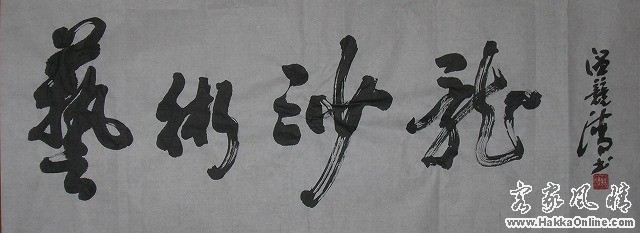 藝術沙龍
客家風情
www.HakkaOnline.com